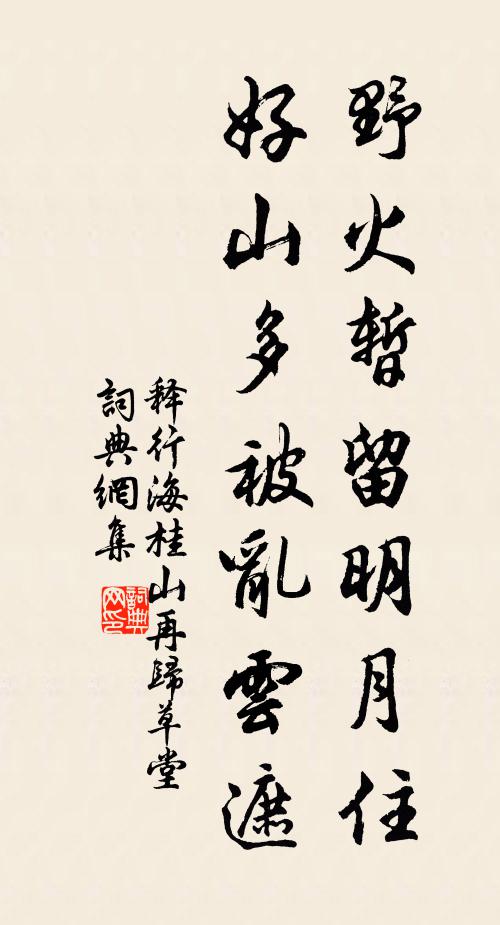 野火暫留明月住
好山多被亂雲遮
释行海桂山再歸草堂
詞典網集
詞典网印